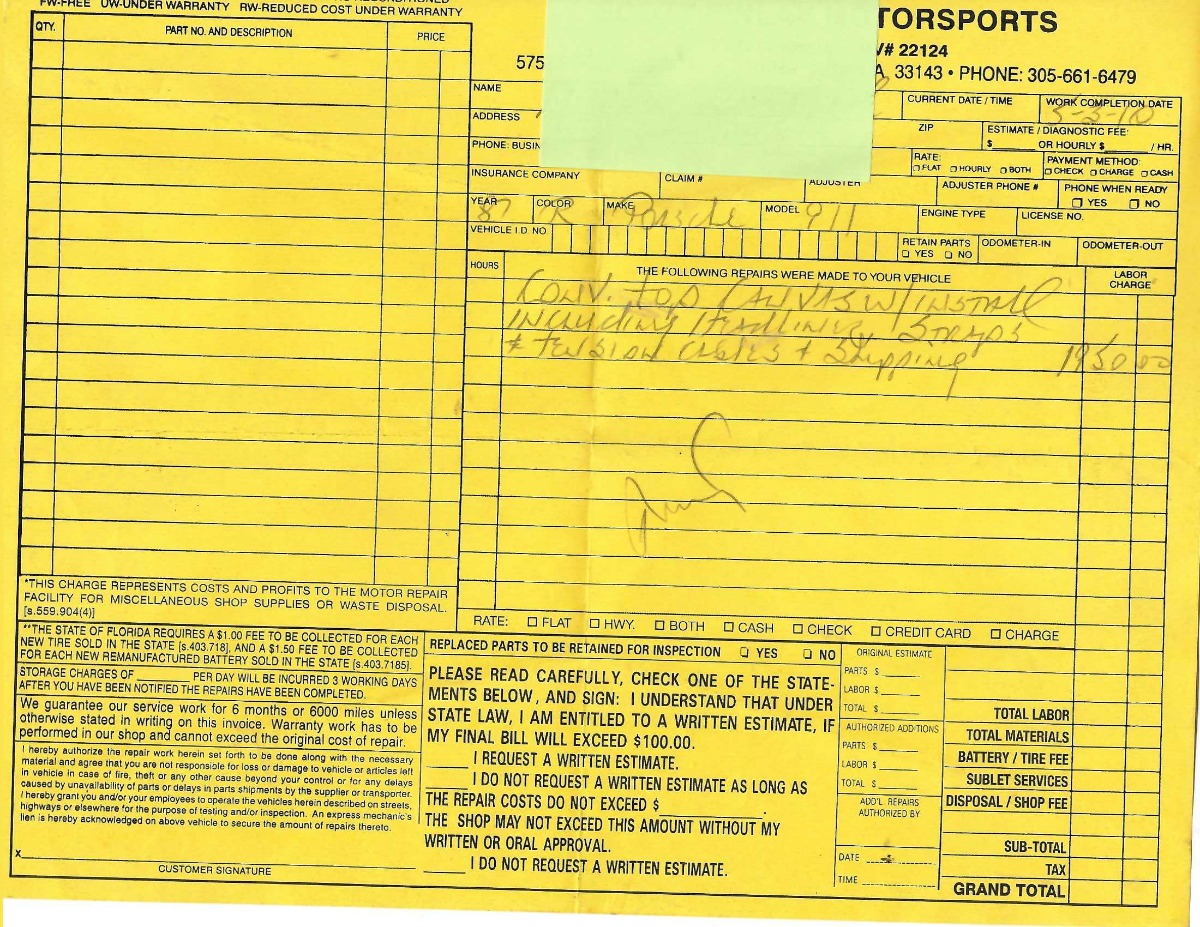 FW-FREE UW-UNDER WARRANTY RW-REDUCED COST UNDER WARRANTY
QTY. PART NO. AND DESCRIPTION PRICE
TORSPORTS
V# 22124
575
A, 33143 • PHONE: 305-661-6479
NAME CURRENT DATE / TIME WORK COMPLETION DATE
5-3-10
ADDRESS ZIP ESTIMATE / DIAGNOSTIC FEE:
$ OR HOURLY $ / HR.
PHONE: BUSIN RATE: PAYMENT METHOD:
☐ FLAT ☐ HOURLY ☐ BOTH ☐ CHECK ☐ CHARGE ☐ CASH
INSURANCE COMPANY CLAIM # ADJUSTER ADJUSTER PHONE # PHONE WHEN READY
☐ YES ☐ NO
YEAR 87 COLOR R MAKE Porsche MODEL 911 ENGINE TYPE LICENSE NO.
VEHICLE I.D. NO. RETAIN PARTS ODOMETER-IN ODOMETER-OUT
☐ YES ☐ NO
HOURS THE FOLLOWING REPAIRS WERE MADE TO YOUR VEHICLE LABOR CHARGE
CONV. TOP CANVAS W/INSTALL
INCLUDING HEADLINER, STRAPS
& TENSION CABLES & Shipping 1950.00
*THIS CHARGE REPRESENTS COSTS AND PROFITS TO THE MOTOR REPAIR
FACILITY FOR MISCELLANEOUS SHOP SUPPLIES OR WASTE DISPOSAL.
[s.559.904(4)]
RATE: ☐ FLAT ☐ HWY. ☐ BOTH ☐ CASH ☐ CHECK ☐ CREDIT CARD ☐ CHARGE
**THE STATE OF FLORIDA REQUIRES A $1.00 FEE TO BE COLLECTED FOR EACH
NEW TIRE SOLD IN THE STATE [s.403.718], AND A $1.50 FEE TO BE COLLECTED
FOR EACH NEW REMANUFACTURED BATTERY SOLD IN THE STATE [s.403.7185].
STORAGE CHARGES OF ________ PER DAY WILL BE INCURRED 3 WORKING DAYS
AFTER YOU HAVE BEEN NOTIFIED THE REPAIRS HAVE BEEN COMPLETED.
We guarantee our service work for 6 months or 6000 miles unless
otherwise stated in writing on this invoice. Warranty work has to be
performed in our shop and cannot exceed the original cost of repair.
I hereby authorize the repair work herein set forth to be done along with the necessary
material and agree that you are not responsible for loss or damage to vehicle or articles left
in vehicle in case of fire, theft or any other cause beyond your control or for any delays
caused by unavailability of parts or delays in parts shipments by the supplier or transporter.
I hereby grant you and/or your employees to operate the vehicles herein described on streets,
highways or elsewhere for the purpose of testing and/or inspection. An express mechanic's
lien is hereby acknowledged on above vehicle to secure the amount of repairs thereto.
X
CUSTOMER SIGNATURE
REPLACED PARTS TO BE RETAINED FOR INSPECTION ☐ YES ☐ NO
PLEASE READ CAREFULLY, CHECK ONE OF THE STATE-
MENTS BELOW, AND SIGN: I UNDERSTAND THAT UNDER
STATE LAW, I AM ENTITLED TO A WRITTEN ESTIMATE, IF
MY FINAL BILL WILL EXCEED $100.00.
____ I REQUEST A WRITTEN ESTIMATE.
____ I DO NOT REQUEST A WRITTEN ESTIMATE AS LONG AS
THE REPAIR COSTS DO NOT EXCEED $ ________.
THE SHOP MAY NOT EXCEED THIS AMOUNT WITHOUT MY
WRITTEN OR ORAL APPROVAL.
____ I DO NOT REQUEST A WRITTEN ESTIMATE.
ORIGINAL ESTIMATE
PARTS $
LABOR $
TOTAL $
AUTHORIZED ADDITIONS
PARTS $
LABOR $
TOTAL $
ADD'L REPAIRS
AUTHORIZED BY
DATE
TIME
TOTAL LABOR
TOTAL MATERIALS
BATTERY / TIRE FEE
SUBLET SERVICES
DISPOSAL / SHOP FEE
SUB-TOTAL
TAX
GRAND TOTAL